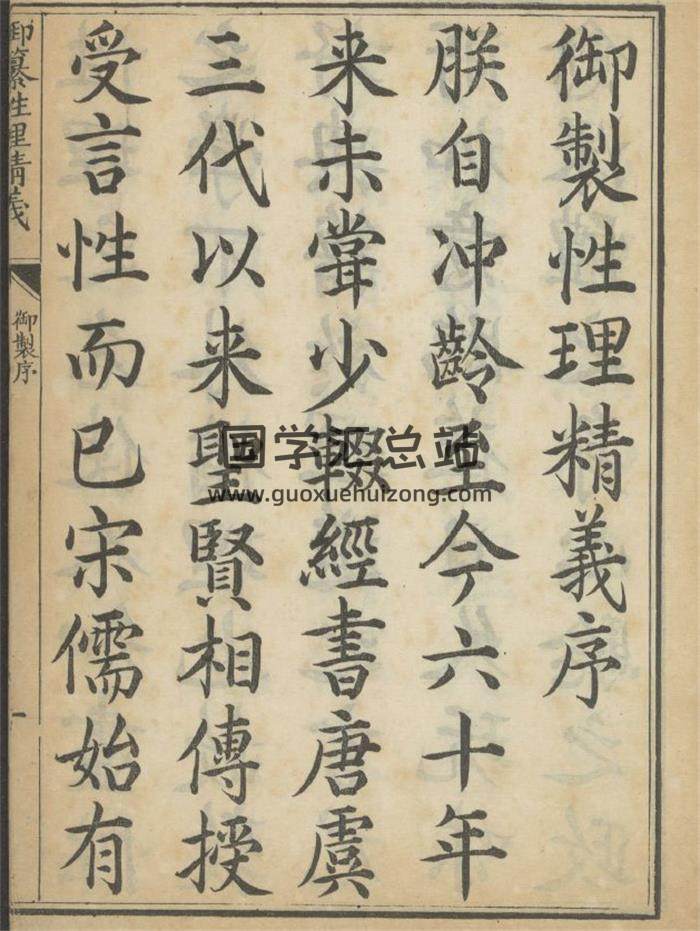 御製性理精義序
朕自冲齡至今六十年
来未甞少輟經書唐虞
三代以来聖賢相傳授
受言性而已宋儒始有
御纂性理精義
御製序
一
国学汇总站
www.guoxuehuizong.com